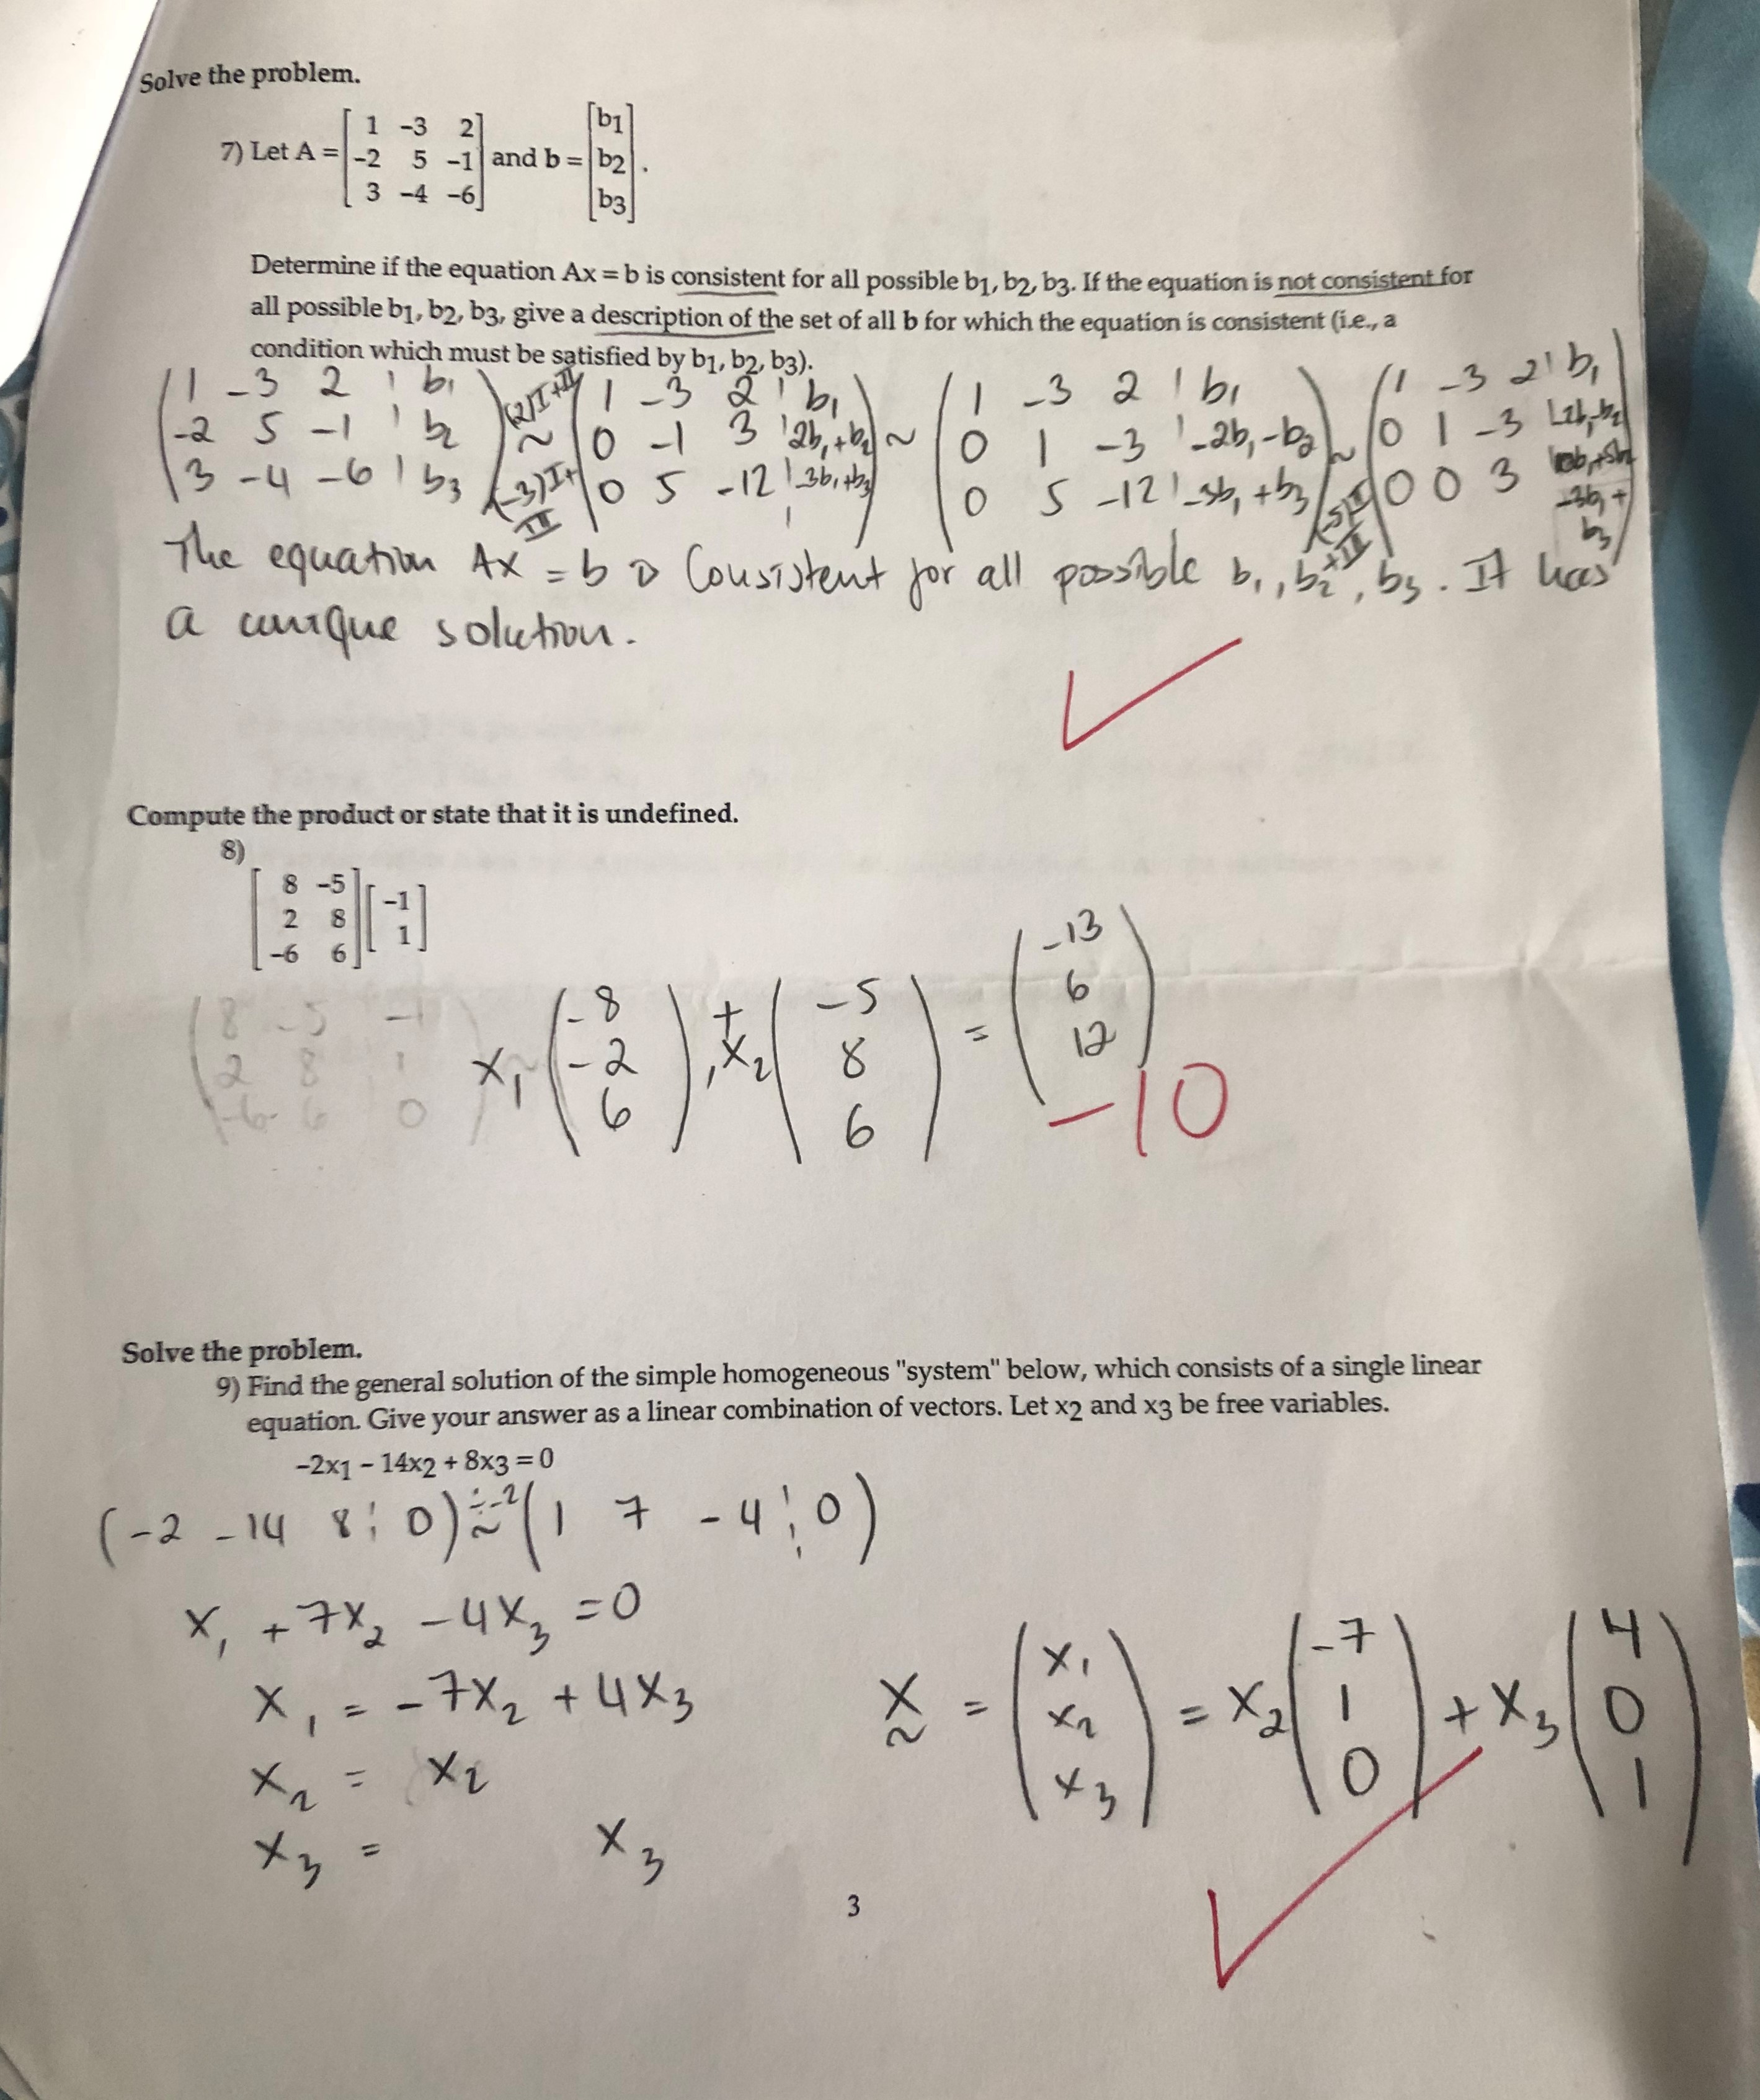 Solve the problem.
7) Let A = [ 1 -3 2 and b = [ b1
-2 5 -1 b2
3 -4 -6 ] b3 ] .
Determine if the equation Ax = b is consistent for all possible b1, b2, b3. If the equation is not consistent for
all possible b1, b2, b3, give a description of the set of all b for which the equation is consistent (i.e., a
condition which must be satisfied by b1, b2, b3).
( 1 -3 2 | b1 ) (2)I+II ( 1 -3 2 | b1 ) ( 1 -3 2 | b1 ) ( 1 -3 2 | b1 )
( -2 5 -1 | b2 ) ~ ( 0 -1 3 | 2b1+b2 ) ~ ( 0 1 -3 | -2b1-b2 ) ~ ( 0 1 -3 | -2b1-b2 )
( 3 -4 -6 | b3 ) (-3)I+III ( 0 5 -12 | -3b1+b3 ) ( 0 5 -12 | -3b1+b3 ) (-5)II+III ( 0 0 3 | 10b1+5b2 -3b1+b3 )
The equation Ax = b is Consistent for all possible b1, b2, b3. It has
a unique solution.
Compute the product or state that it is undefined.
8)
[ 8 -5 ] [ -1 ]
2 8 1
-6 6
( 8 -5 -1 ) ( -8 ) + ( -5 ) ( -13 )
( 2 8 1 ) x1 ( -2 ) , x2 ( 8 ) = ( 6 )
( -6 6 0 ) ( 6 ) ( 6 ) ( 12 )
-10
Solve the problem.
9) Find the general solution of the simple homogeneous "system" below, which consists of a single linear
equation. Give your answer as a linear combination of vectors. Let x2 and x3 be free variables.
-2x1 - 14x2 + 8x3 = 0
( -2 -14 8 | 0 ) ÷-2 ~ ( 1 7 -4 | 0 )
x1 + 7x2 - 4x3 = 0
x1 = -7x2 + 4x3
x2 = x2
x3 = x3
x = ( x1 x2 x3 ) = x2 ( -7 1 0 ) + x3 ( 4 0 1 )
3